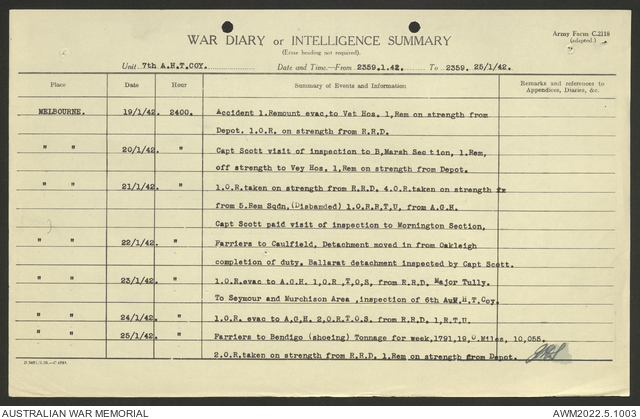 Army Form C.2118
(adapted.)
WAR DIARY or INTELLIGENCE SUMMARY
(Erase heading not required).
Unit 7th A.H.T.COY. Date and Time.—From 2359.1.42. To 2359. 25/1/42.
Place Date Hour Summary of Events and Information Remarks and references to Appendices, Diaries, &c.
MELBOURNE. 19/1/42. 2400. Accident 1.Remount evac,to Vet Hos. 1,Rem on strength from
Depot. 1.O.R. on strength from R.R.D.
" " 20/1/42. " Capt Scott visit of inspection to B,Marsh Section, 1.Rem,
off strength to Vey Hos. 1,Rem on strength from Depot.
" " 21/1/42. " 1.O.R.taken on strength from R.R.D. 4.O.R.taken on strength
from 5.Rem Sqdn.(Disbamded) 1.O.R.R,T,U, from A.G.H.
Capt Scott paid visit of inspection to Mornington Section,
" " 22/1/42. " Farriers to Caulfield, Detachment moved in from Oakleigh
completion of duty. Ballarat detachment inspected by Capt Scott.
" " 23/1/42. " 1.O.R.evac to A.G.H. 1,O.R ,T,O,S, from R.R.D. Major Tully.
To Seymour and Murchison Area ,inspection of 6th AuM.H.T.Coy.
" " 24/1/42. " 1.O.R. evac to A,G.H. 2,O.R.T.O.S. from R.R.D. 1,R.T.U.
" " 25/1/42. " Farriers to Bendigo (shoeing) Tonnage for week,1791,19,0.Miles, 10,055.
2.O.R.taken on strength from R.R.D. 1.Rem on strength from Depot.
AUSTRALIAN WAR MEMORIAL AWM2022.5.1003